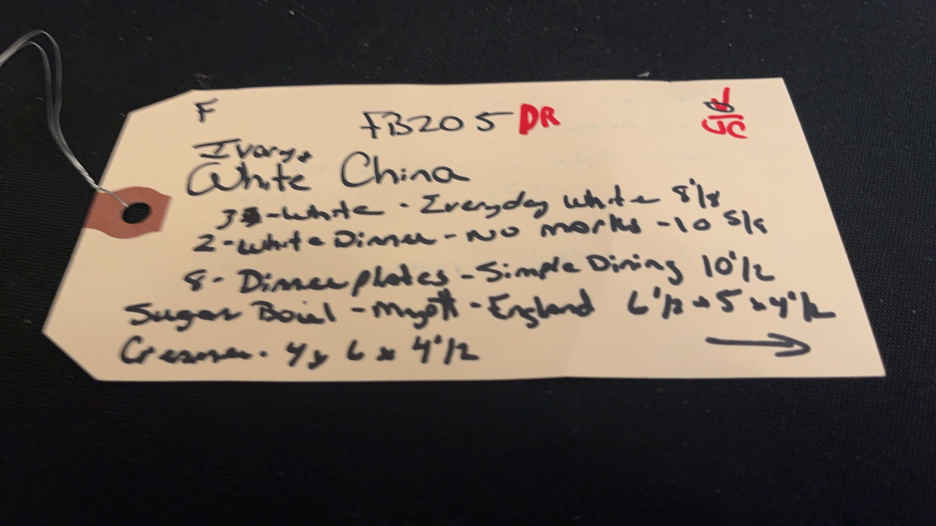 F
FB205 DR
JC
Ivory &
White China
3 - White - Everyday White 8 1/8
2 - White Dinner - No marks - 10 5/8
8 - Dinner plates - Simple Dining 10 1/2
Sugar Bowl - Myott - England 6 1/2 x 5 x 4 1/2
Creamer - 4 x 6 x 4 1/2